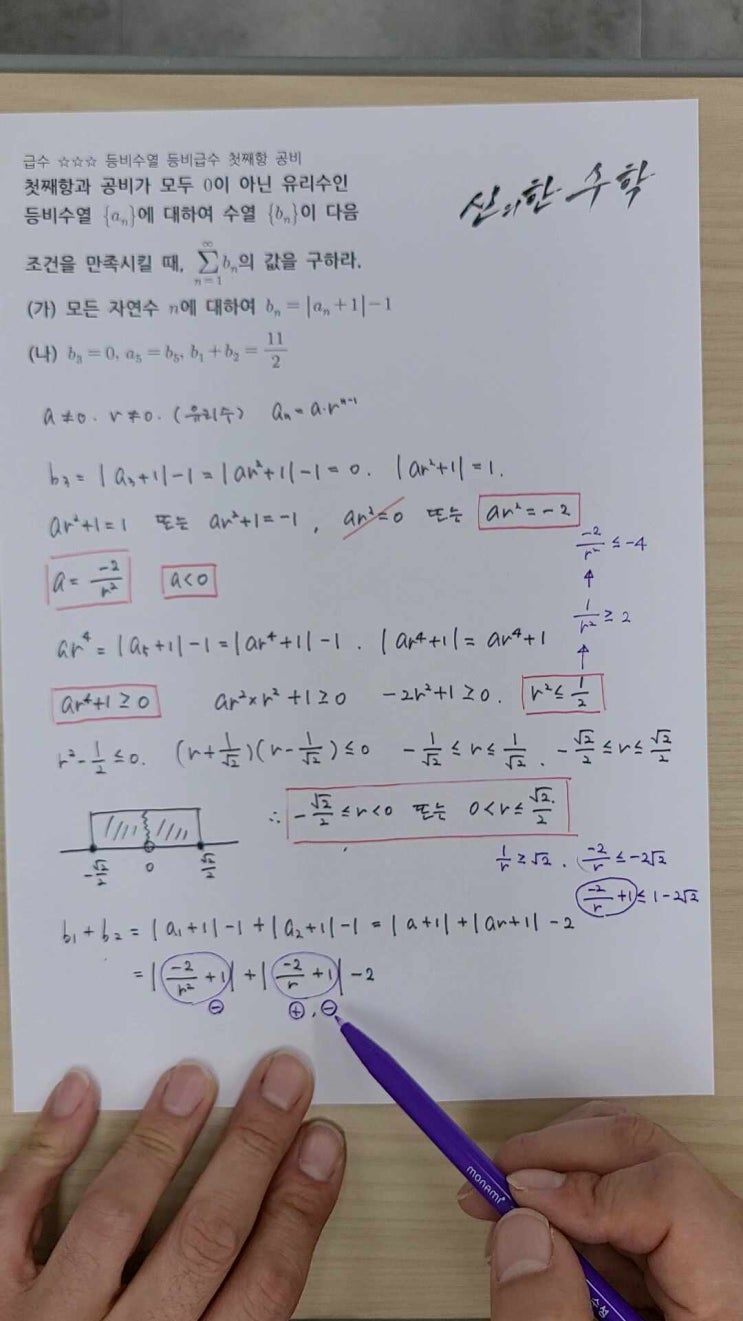 급수 ☆☆☆ 등비수열 등비급수 첫째항 공비
첫째항과 공비가 모두 0이 아닌 유리수인
등비수열 {aₙ}에 대하여 수열 {bₙ}이 다음
조건을 만족시킬 때, ∑_{n=1}^{∞} bₙ의 값을 구하라.
(가) 모든 자연수 n에 대하여 bₙ = |aₙ+1|−1
(나) b₃ = 0, a₅ = b₅, b₁+b₂ = 11/2
신의한 수학
a≠0. r≠0. (유리수) aₙ = a·rⁿ⁻¹
b₃ = |a₃+1|−1 = |ar²+1|−1 = 0. |ar²+1| = 1.
ar²+1=1 또는 ar²+1=−1, ar²=0 또는 ar²=−2
−2/r² ≤ −4
↑
a = −2/r² a<0
1/r² ≥ 2
↑
ar⁴ = |a₅+1|−1 = |ar⁴+1|−1. |ar⁴+1| = ar⁴+1
ar⁴+1 ≥ 0 ar²×r²+1≥0 −2r²+1≥0. r² ≤ 1/2
r²−1/2 ≤ 0. (r+1/√2)(r−1/√2) ≤ 0 −1/√2 ≤ r ≤ 1/√2. −√2/2 ≤ r ≤ √2/2
∴ −√2/2 ≤ r < 0 또는 0 < r ≤ √2/2.
−√2/2 0 √2/2
1/r ≥ √2. −2/r ≤ −2√2
−2/r+1 ≤ 1−2√2
b₁+b₂ = |a₁+1|−1+|a₂+1|−1 = |a+1|+|ar+1|−2
= |−2/r²+1|+|−2/r+1|−2
⊖ ⊕, ⊖
monami
수성